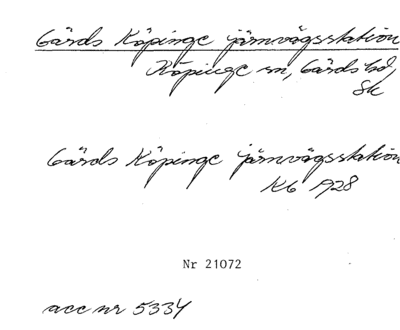 Gärds Köpinge järnvägsstation
Köpinge sn, Gärds hd,
Sk
Gärds Köpinge järnvägsstation
K6 1928
Nr 21072
acc nr 5334